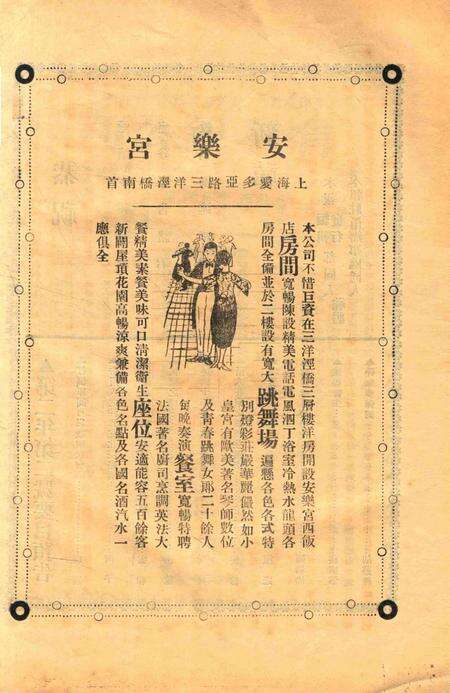 安樂宮
上海愛多亞路三洋涇橋南首
本公司不惜巨資在三洋涇橋三層樓洋房開設安樂宮西飯
店房間寬暢陳設精美電話電風泗丁浴室冷熱水龍頭各
房間全備並於二樓設有寬大跳舞場遍懸各色各式特
別燈彩莊嚴華麗儼然如小
皇宮有歐美著名琴師數位
及青春跳舞女郎二十餘人
每晚奏演餐室寬暢特聘
法國著名廚司烹調英法大
餐精美素餐美味可口清潔衛生座位安適能容五百餘客
新闢屋頂花園高暢涼爽兼備各色名點及各國名酒汽水一
應俱全